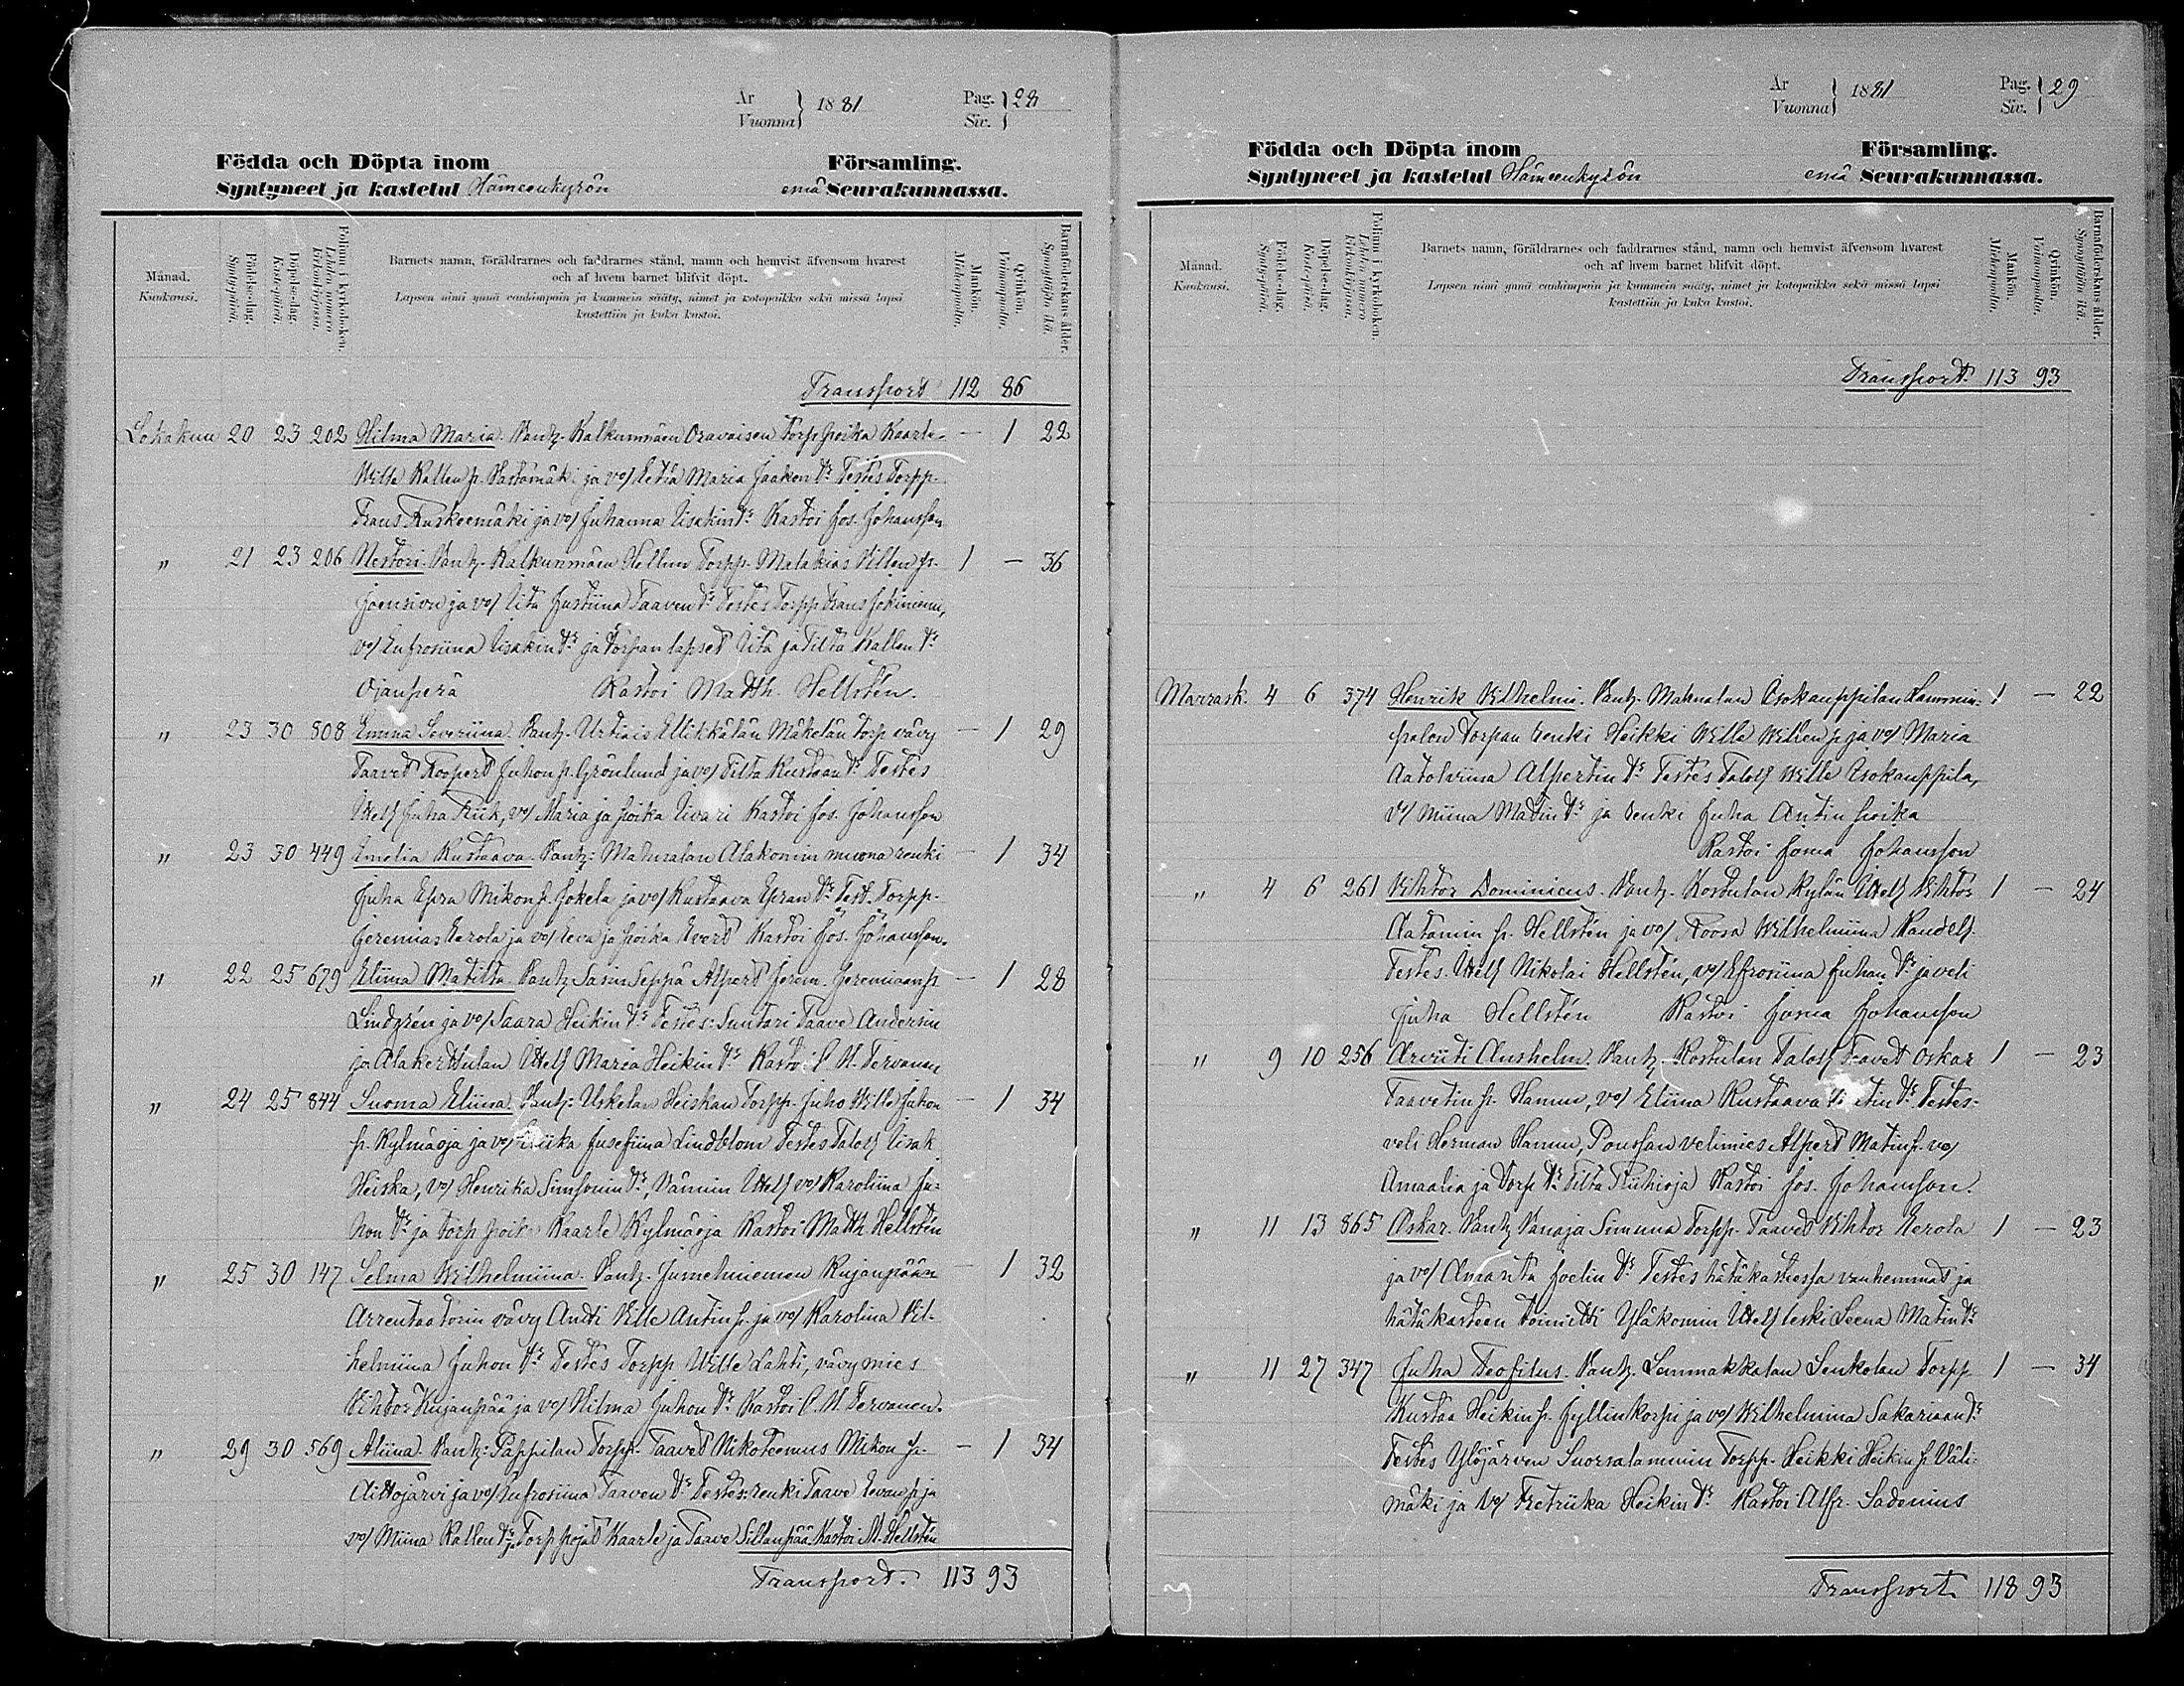 År
Vuonna } 1881
Pag.
Siv. } 28
Födda och Döpta inom Församling.
Syntyneet ja kastetut Hämeenkyrön emä Seurakunnassa.
Månad.
Kuukausi.
Födelse-dag.
Syntypäivä.
Döpelse-dag.
Kastepäivä.
Folium i kyrkoboken.
Lehden numero
Kirkonkirjassa.
Barnets namn, föräldrarnes och faddrarnes stånd, namn och hemvist äfvensom hvarest
och af hvem barnet blifvit döpt.
Lapsen nimi ynnä vanhimpain ja kummein sääty, nimet ja kotopaikka sekä missä lapsi
kastettiin ja kuka kastoi.
Mankön.
Miehenpuolia.
Qvinkön.
Vaimonpuolia.
Barnaföderskans ålder.
Synnyttäjän ikä.
Transport 112 86
Lokakuu 20 23 202 Hilma Maria. Vanh. Kalkunmäen Oravaisen Torp poika Kaarle — 1 22
Wille Kallen p. Hastamäki ja vo/ Eetla Maria Jaakon tr Testes Torpp.
Frans Ruskeenmäki ja vo/ Juhanna Iisakin tr Kastoi Jos. Johansson
" 21 23 206 Nestori. Vanh. Kalkunmäen Hellun Torpp. Malakias Villen p. 1 — 36
Joensivu ja vo/ Iita Justiina Taaven tr Testes Torpp Frans Jokiniemi,
vo/ Eufrosiina Iisakin tr ja Torpan lapset Iita ja Tilta Kallen tr
Ojanperä Kastoi Matth. Hellstén.
" 23 30 508 Emma Severiina. Vanh. Urtiais Ellikkälän Mäkelän torp vävy — 1 29
Taavet Roopert Juhon p. Grönlund ja vo/ Tilta Kustaan tr Testes
Itell Juha Kiik, vo/ Maria ja poika Iivari Kastoi Jos. Johansson
" 23 30 449 Emelia Kustaava. Vanh: Mahnalan Alakomin muona renki — 1 34
Juha Esra Mikon p. Jokela ja vo/ Kustaava Esran tr Test. Torpp.
Jeremias Eerola ja vo/ Eeva ja poika Evert Kastoi Jos. Johansson.
" 22 25 679 Eliina Matilta. Vanh Sasin Seppä Alpert Jerem. Jeremiaan p — 1 28
Lindgrén ja vo/ Saara Heikin tr Testes: Suutari Taave Andersin
ja Alakerttulan Itell Maria Heikin tr Kastoi C. A. Tervonen
" 24 25 844 Suoma Eliina. Vanh: Uskelan Heiskan Torpp. Juho Wille Juhon — 1 34
p. Kylmäoja ja vo/ Josefiina Lindblom Testes Taloll Iisak
Heiska, vo/ Henrika Simsonin tr, Vännin Itell vo/ Karoliina Ju-
hon tr ja torp poik Kaarle Kylmäoja Kastoi Matth Hellstén
" 25 30 147 Selma Wilhelmiina. Vanh. Jumelniemen Kujanpään — 1 32
Arrentaatorin vävy Antti Wille Antin p. ja vo/ Karolina Vil-
helmiina Juhon tr Testes Torpp Wille Lahti, vävy mies
Vihtor Kujanpää ja vo/ Hilma Juhon tr Kastoi C. A. Tervonen.
" 29 30 569 Aliina. Vanh: Pappilan Torpp. Taavet Nikoteemus Mikon p. — 1 34
Aittojärvi ja vo/ Eufrosiina Taaven tr Testes: renki Taave Eevan p ja
vo/ Miina Kallen tr Torp pojat Kaarle ja Taave Sillanpää. Kastoi M. Hellstén
Transport. 113 93
År
Vuonna } 1881
Pag.
Siv. } 29
Födda och Döpta inom Församling.
Syntyneet ja kastetut Hämeenkyrön emä Seurakunnassa.
Månad.
Kuukausi.
Födelse-dag.
Syntypäivä.
Döpelse-dag.
Kastepäivä.
Folium i kyrkoboken.
Lehden numero
Kirkonkirjassa.
Barnets namn, föräldrarnes och faddrarnes stånd, namn och hemvist äfvensom hvarest
och af hvem barnet blifvit döpt.
Lapsen nimi ynnä vanhimpain ja kummein sääty, nimet ja kotopaikka sekä missä lapsi
kastettiin ja kuka kastoi.
Mankön.
Miehenpuolia.
Qvinkön.
Vaimonpuolia.
Barnaföderskans ålder.
Synnyttäjän ikä.
Transport. 113 93
Marrask. 4 6 374 Henrik Vilhelmi. Vanh. Mahnalan Isokauppilan Hammin- 1 — 22
palon Torpan renki Heikki Wille Willen p ja vo/ Maria
Aatolviina Alpertin tr Testes Taloll Wille Isokauppila,
vo/ Miina Matin tr ja renki Juha Antin poika
Kastoi Joma Johansson
" 4 6 261 Vihtor Dominicus. Vanh. Kostulan Kylän Itell Vihtor 1 — 24
Aatamin p. Hellstén ja vo/ Roosa Wilhelmiina Vandell.
Testes. Itell Nikolai Hellstén, vo/ Efrosiina Juhan tr ja veli
Juha Hellstén Kastoi Joma Johansson
" 9 10 256 Arviiti Anshelm. Vanh. Kostulan Taloll Taavet Oskar 1 — 23
Taavetin p. Hannu, vo/ Eliina Kustaava tin tr Testes:
veli Herman Hannu, Poussan velimies Alpert Matin p. vo/
Amaalia ja Torp tr Tilta Riihioja Kastoi Jos. Johansson.
" 11 13 865 Oskar. Vanh Vanaja Simuna Torpp. Taavet Vihtor Eerola 1 — 23
ja vo/ Amanta Joelin tr Testes hätäkasteessa vanhemmat ja
hätäkasteen toimitti Yläkomin Itell leski Leena Matin tr
" 11 27 347 Juha Teofilus. Vanh. Lammakkalan Senkolan Torpp 1 — 34
Kustaa Heikin p. Jyllinkorpi ja vo/ Wilhelmina Sakariaan tr
Testes Ylöjärven Suorsalammin Torpp. Heikki Heikin p. Väli-
mäki ja vo/ Fretriika Heikin tr Kastoi Alfr. Sadenius
Transport 118 93